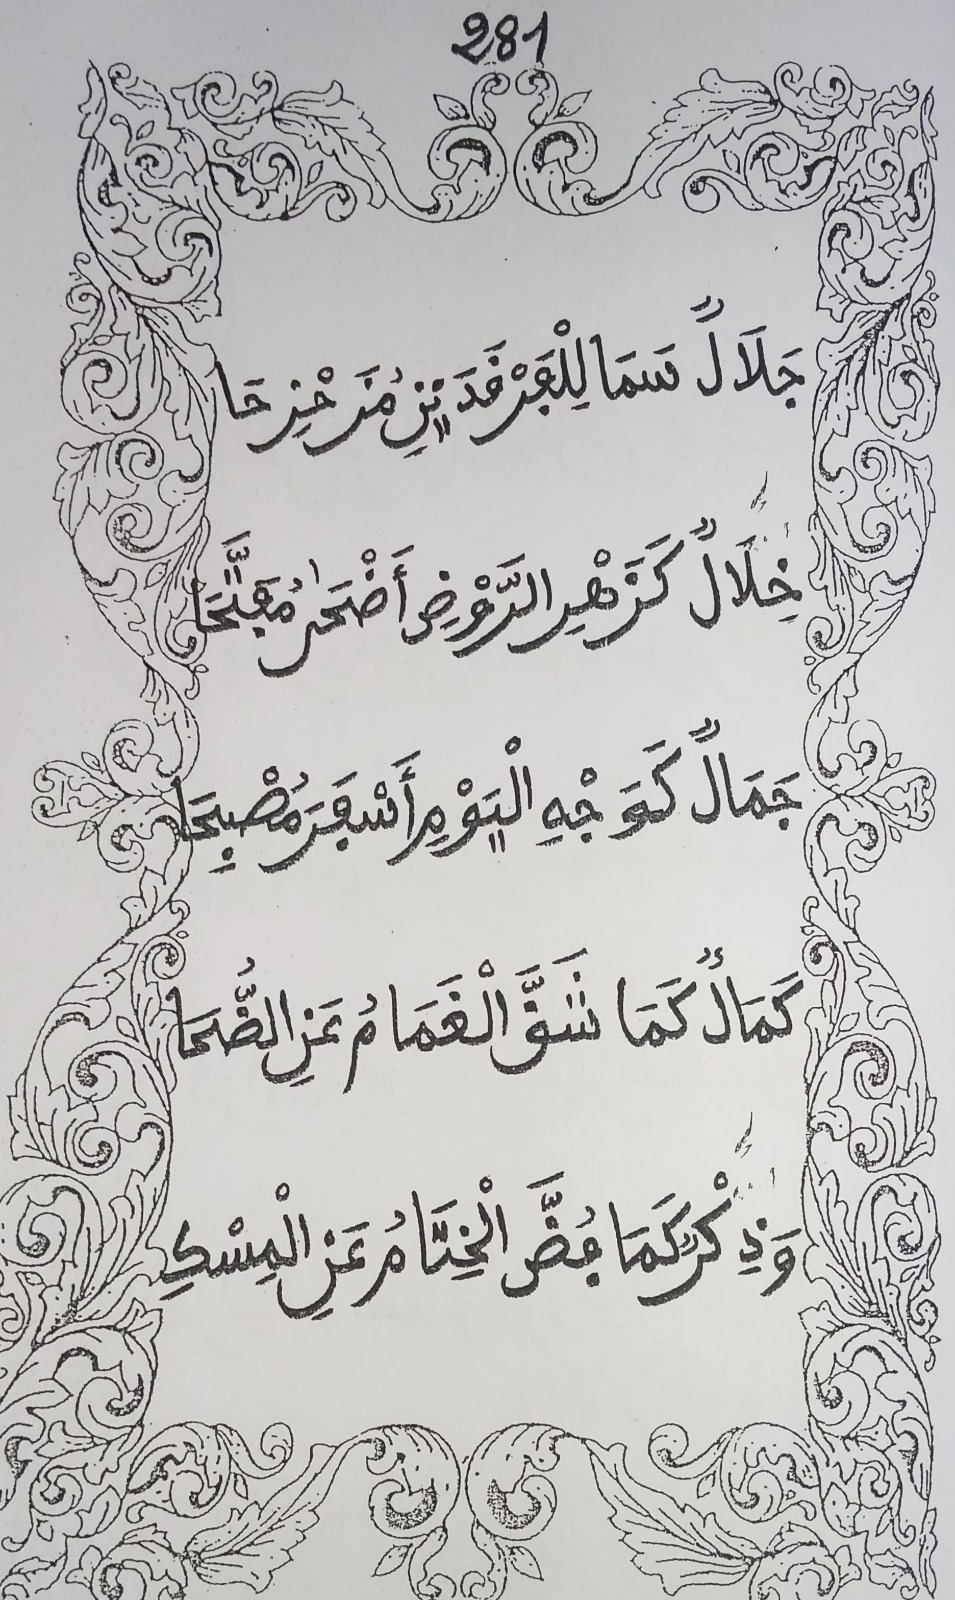 281
جَلَالٌ سَمَا لِلْفَرْقَدَيْنِ مُزَحْزِحَا
خِلَالٌ كَزَهْرِ الرَّوْضِ أَضْحَىٰ مُفَتَّحَا
جَمَالٌ كَوَجْهِ الْيَوْمِ أَسْفَرَ مُصْبِحَا
كَمَالٌ كَمَا شَقَّ الْغَمَامُ عَنِ الضُّحَا
وَذِكْرٌ كَمَا فُضَّ الْخِتَامُ عَنِ الْمِسْكِ